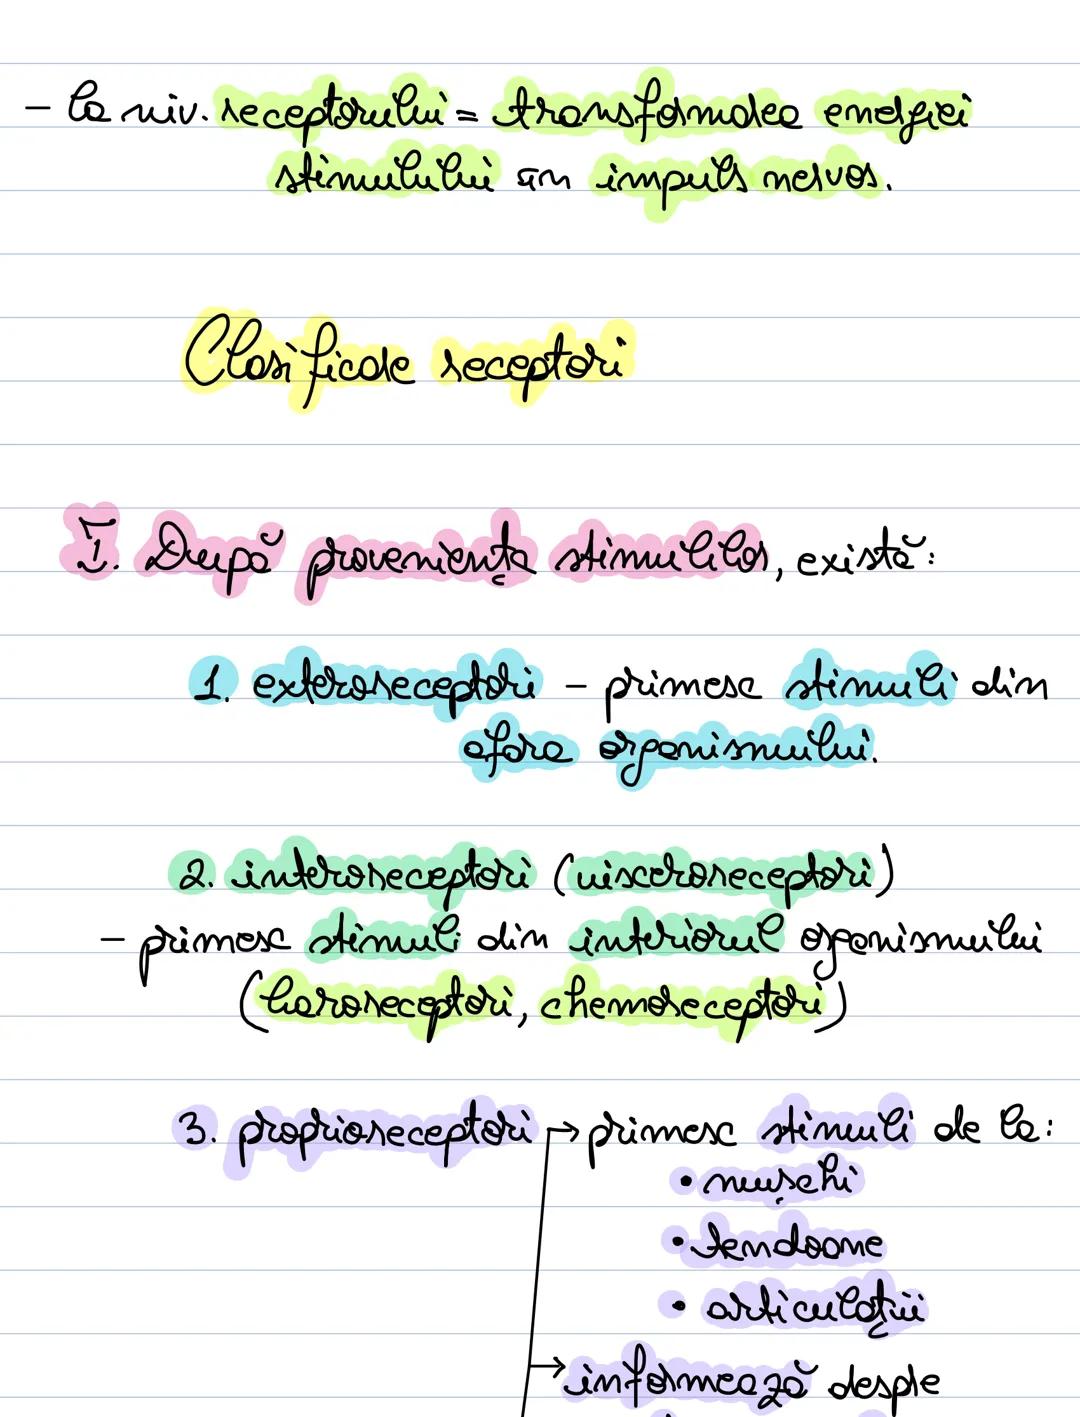 - la niv. receptorului = transformarea energiei
stimulului în impuls nervos.
Clasificare receptori
I. După proveniența stimulilor, există:
1. exteroreceptori - primesc stimuli din
afara organismului.
2. interoreceptori (visceroreceptori)
- primesc stimuli din interiorul organismului
(baroreceptori, chemoreceptori)
3. proprioreceptori → primesc stimuli de la:
• mușchi
• tendoane
• articulații
→ informează despre